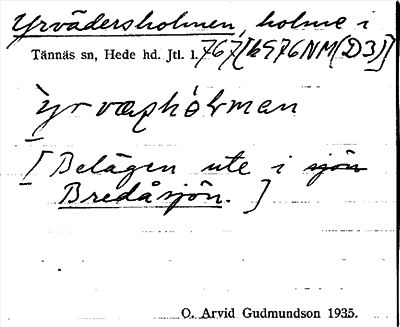 Yrvädersholmen, holme i
Tännäs sn, Hede hd. Jtl. 1. 767 [16 S76 NM (D3)]
`yrvæṕhòlman
[Belägen ute i sjön
Bredåsjön.]
O. Arvid Gudmundson 1935.